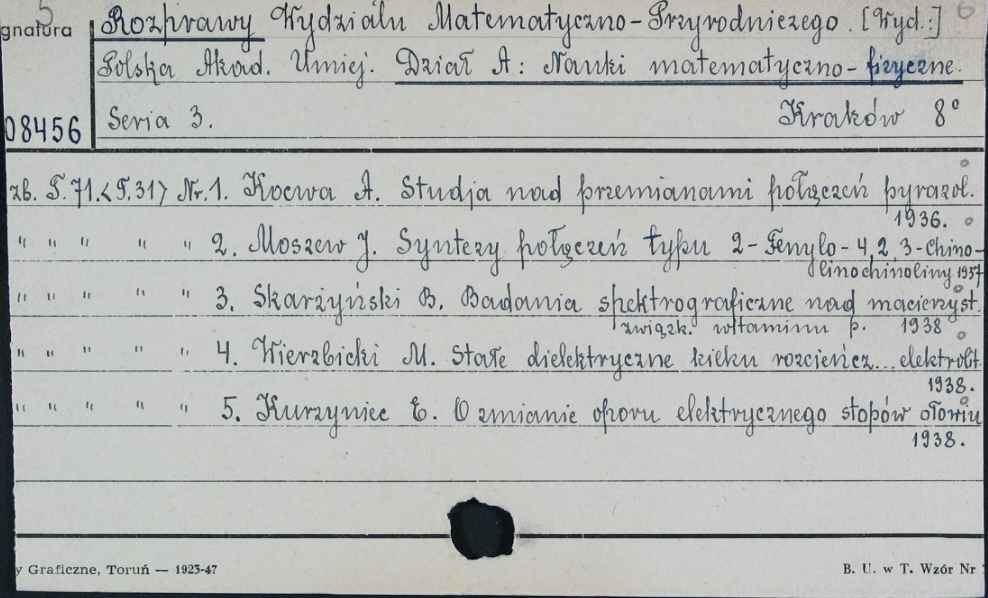 5
6
gnatura Rozprawy Wydziału Matematyczno-Przyrodniczego. [Wyd.:]
Polska Akad. Umiej. Dział A: Nauki matematyczno-fizyczne.
08456 Seria 3. Kraków 8°
zb. T.71.<T.31> Nr.1. Kocwa A. Studja nad przemianami połączeń pyrazol.
1936.
" " " " " 2. Moszew J. Syntezy połączeń typu 2-Fenylo-4,2,3-Chino-
linochinoliny 1937
" " " " " 3. Skarżyński B. Badania spektrograficzne nad macierzyst.
związk. witaminu p. 1938
" " " " " 4. Wierzbicki M. Stałe dielektryczne kilku rozcieńcz... elektrolit.
1938.
" " " " " 5. Kurzyniec E. O zmianie oporu elektrycznego stopów ołowiu
1938.
y Graficzne, Toruń — 1923-47 B. U. w T. Wzór Nr